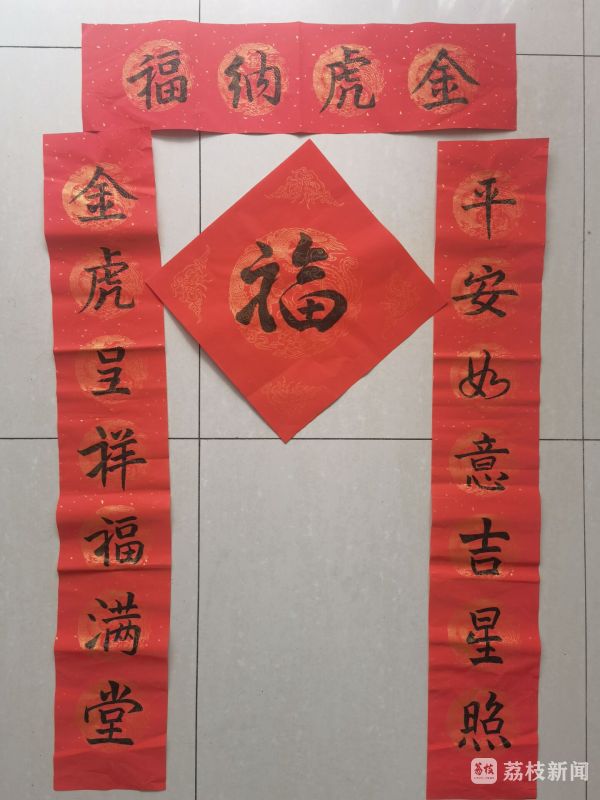 金虎纳福
平安如意吉星照
金虎呈祥福满堂
福
荔枝新闻